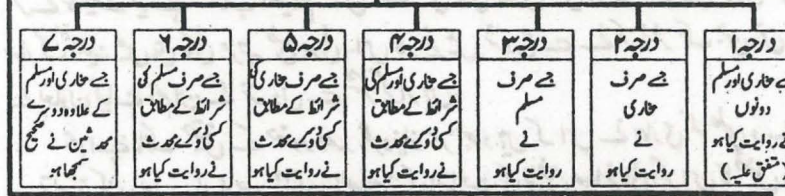 درجہ ۱
جسے بخاری اور مسلم
دونوں
نے روایت کیا ہو
(متفق علیہ)
درجہ ۲
جسے صرف
بخاری
نے
روایت کیا ہو
درجہ ۳
جسے صرف
مسلم
نے
روایت کیا ہو
درجہ ۴
جسے بخاری اور مسلم کی
شرائط کے مطابق
کسی دوسرے محدث
نے روایت کیا ہو
درجہ ۵
جسے صرف بخاری کی
شرائط کے مطابق
کسی دوسرے محدث
نے روایت کیا ہو
درجہ ۶
جسے صرف مسلم کی
شرائط کے مطابق
کسی دوسرے محدث
نے روایت کیا ہو
درجہ ۷
جسے بخاری اور مسلم
کے علاوہ دوسرے
محدثین نے صحیح
سمجھا ہو